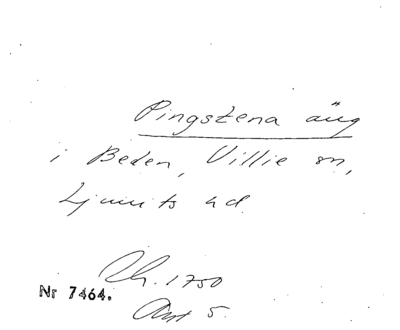 Pingstena äng
i Beden, Villie sn,
Ljunits hd
Lh. 1750
Nr 7464.
Akt 5.